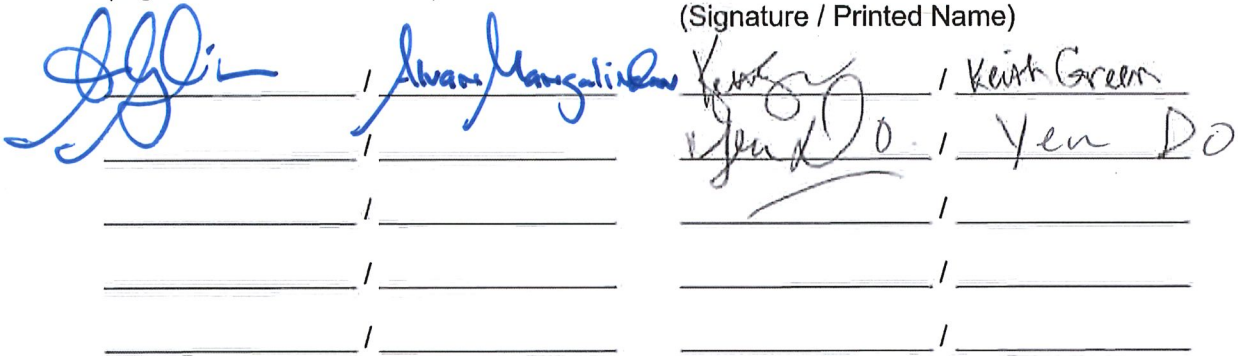 (Signature / Printed Name)
/ Alvan Mangalindan / Keith Green
/ Yen Do / Yen Do
/ /
/ /
/ /